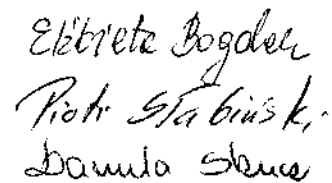 Elżbieta Bogdan
Piotr Słabiński
Danuta